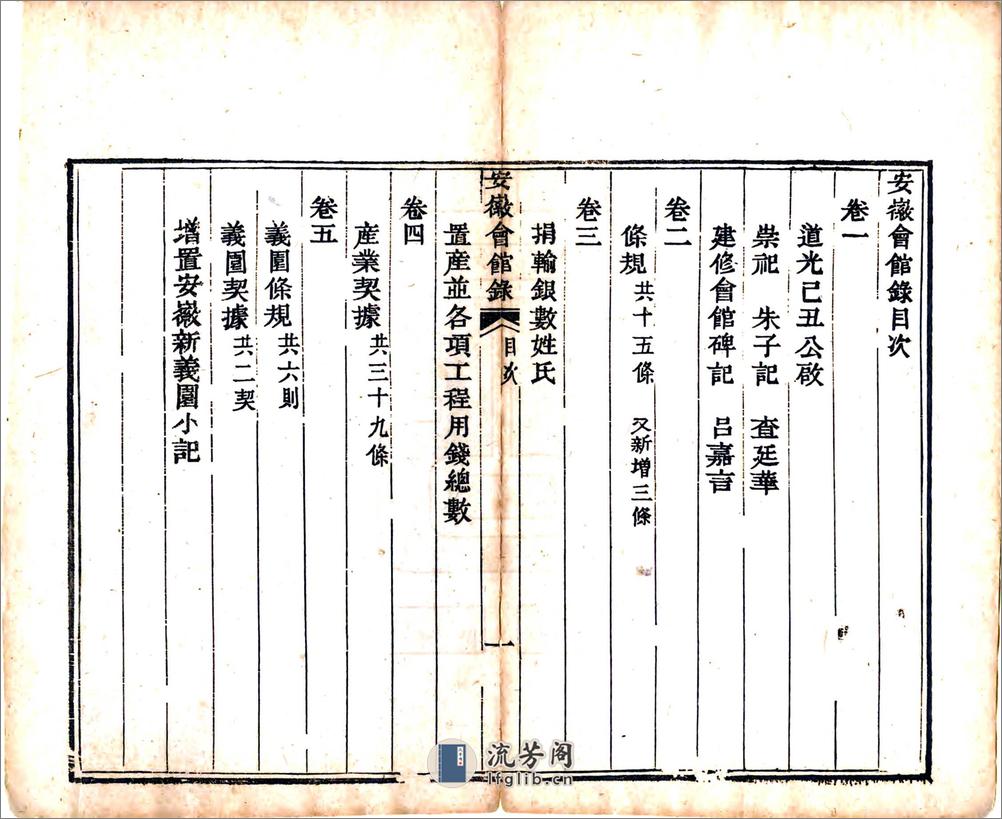 安徽會館錄目次
卷一
道光己丑公啟
崇祀　朱子記　查廷華
建修會館碑記　呂嘉言
卷二
條規共十五條　又新增三條
卷三
捐輸銀數姓氏
安徽會館錄　目次　一
置產並各項工程用錢總數
卷四
産業契據共三十九條
卷五
義園條規共六則
義園契據共二契
增置安徽新義園小記
流芳阁
lfglib.cn